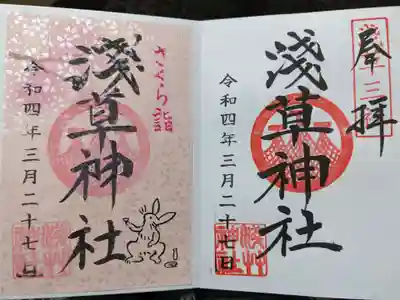 奉拝
淺草神社
令和四年三月二十七日
さくら詣
淺草神社
令和四年三月二十七日